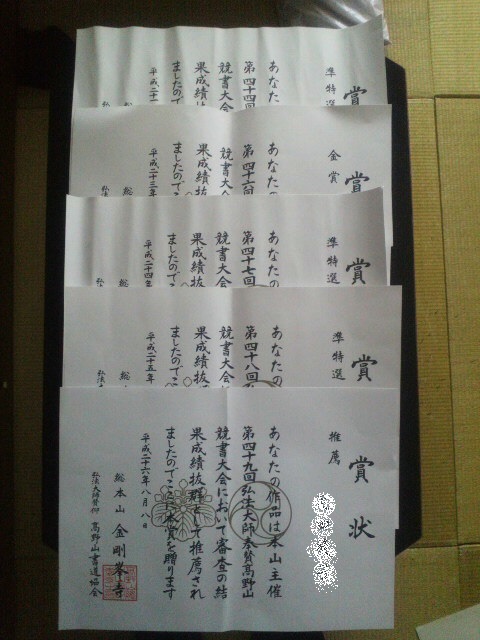 賞
準特選
あなたの
第四十四回
競書大会
果成績抜
ましたので
平成二十
総
弘法
賞
金賞
あなたの
第四十六回
競書大会
果成績抜
ましたので
平成二十三年
総
弘法
賞
準特選
あなたの
第四十七回
競書大会
果成績抜
ましたのでこ
平成二十四年
総
弘法
賞
準特選
あなたの
第四十八回
競書大会に
果成績抜
ましたのでこ
平成二十五年
総
弘法
賞状
推薦
あなたの作品は本山主催
第四十九回弘法大師奉賛高野山
競書大会において審査の結
果成績抜群として推薦され
ましたのでここに本賞を贈ります
平成二十六年八月八日
総本山金剛峯寺
弘法大師奉賛 高野山書道協会